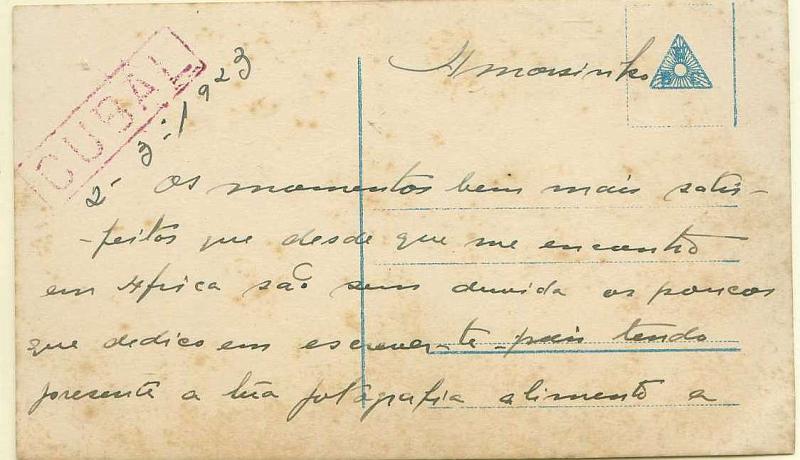 CUBAL
2-3-1923
Amorsinho
Os momentos bem mais satis-
-feitos que desde que me encontro
em Africa são sem duvida os poucos
que dedico em escrever-te pois tendo
presente a túa fotografia alimento a